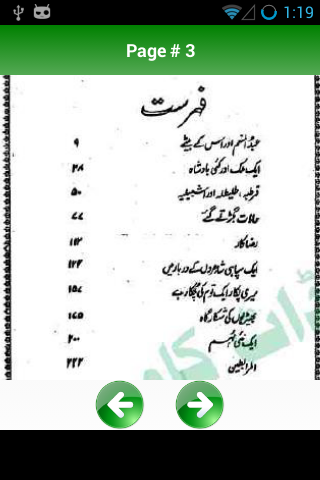 1:19
Page # 3
فہرست
عبدالمنعم اور اس کے بیٹے ۹
ایک ملک اور کئی بادشاہ ۲۸
قرطبہ، طلیطلہ اور اشبیلیہ ۵۰
حالات بگڑتے گئے ۷۷
رضاکار ۱۱۳
ایک سپاہی شاہزادوں کے دربار میں ۱۲۴
میری پکار ایک قوم کی پکار ہے ۱۵۷
بھیڑیوں کی شکارگاہ ۱۷۵
ایک نئی مہم ۲۰۰
المرابطین ۲۲۲